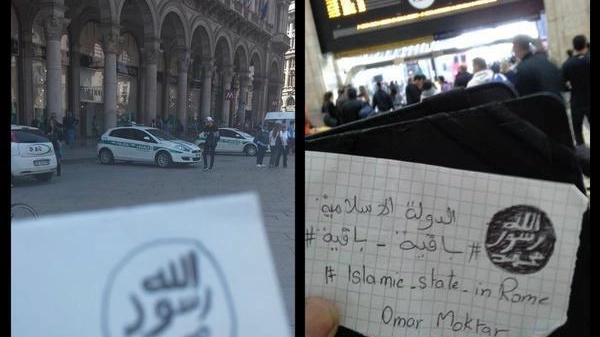 الله
رسول
الدولة الإسلامية
# باقية - باقية #
الله
رسول
محمد
# Islamic_state_in Rome
Omar Moktar